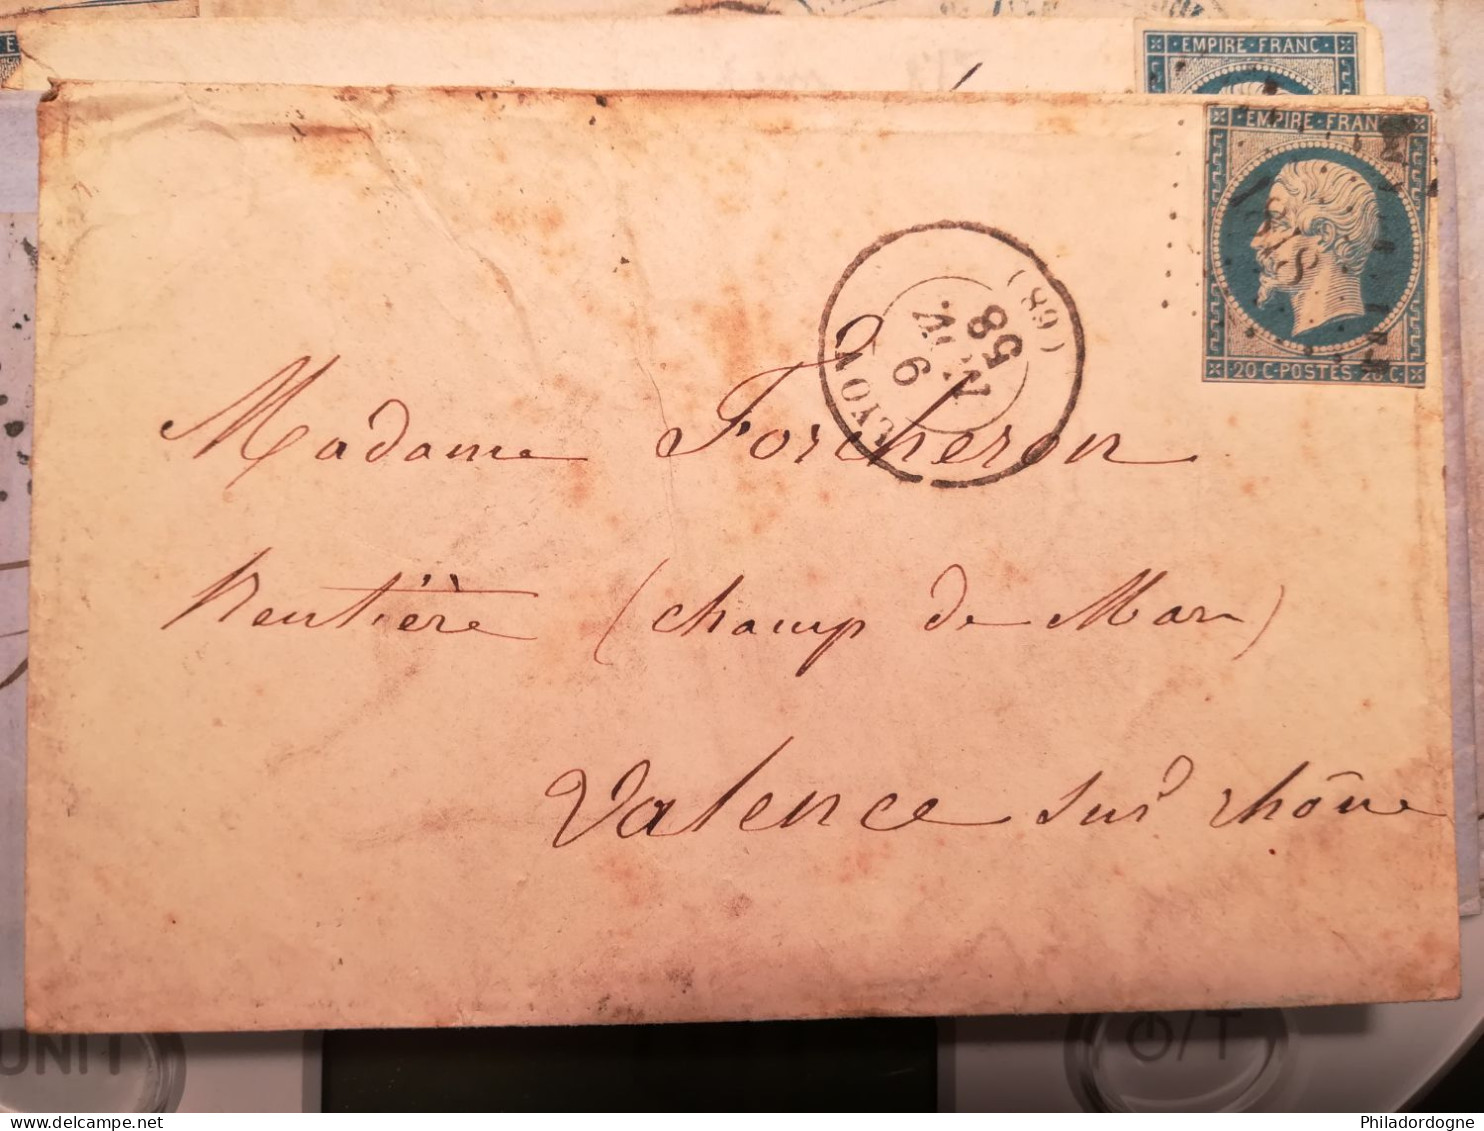 EMPIRE-FRANC
EMPIRE-FRANC
20 C-POSTES 20 C
LYON
(68)
9
58
Madame Forcheron
Rentière (Champ de Mars)
Valence sur rhône
UNIT
/T
Philadordogne